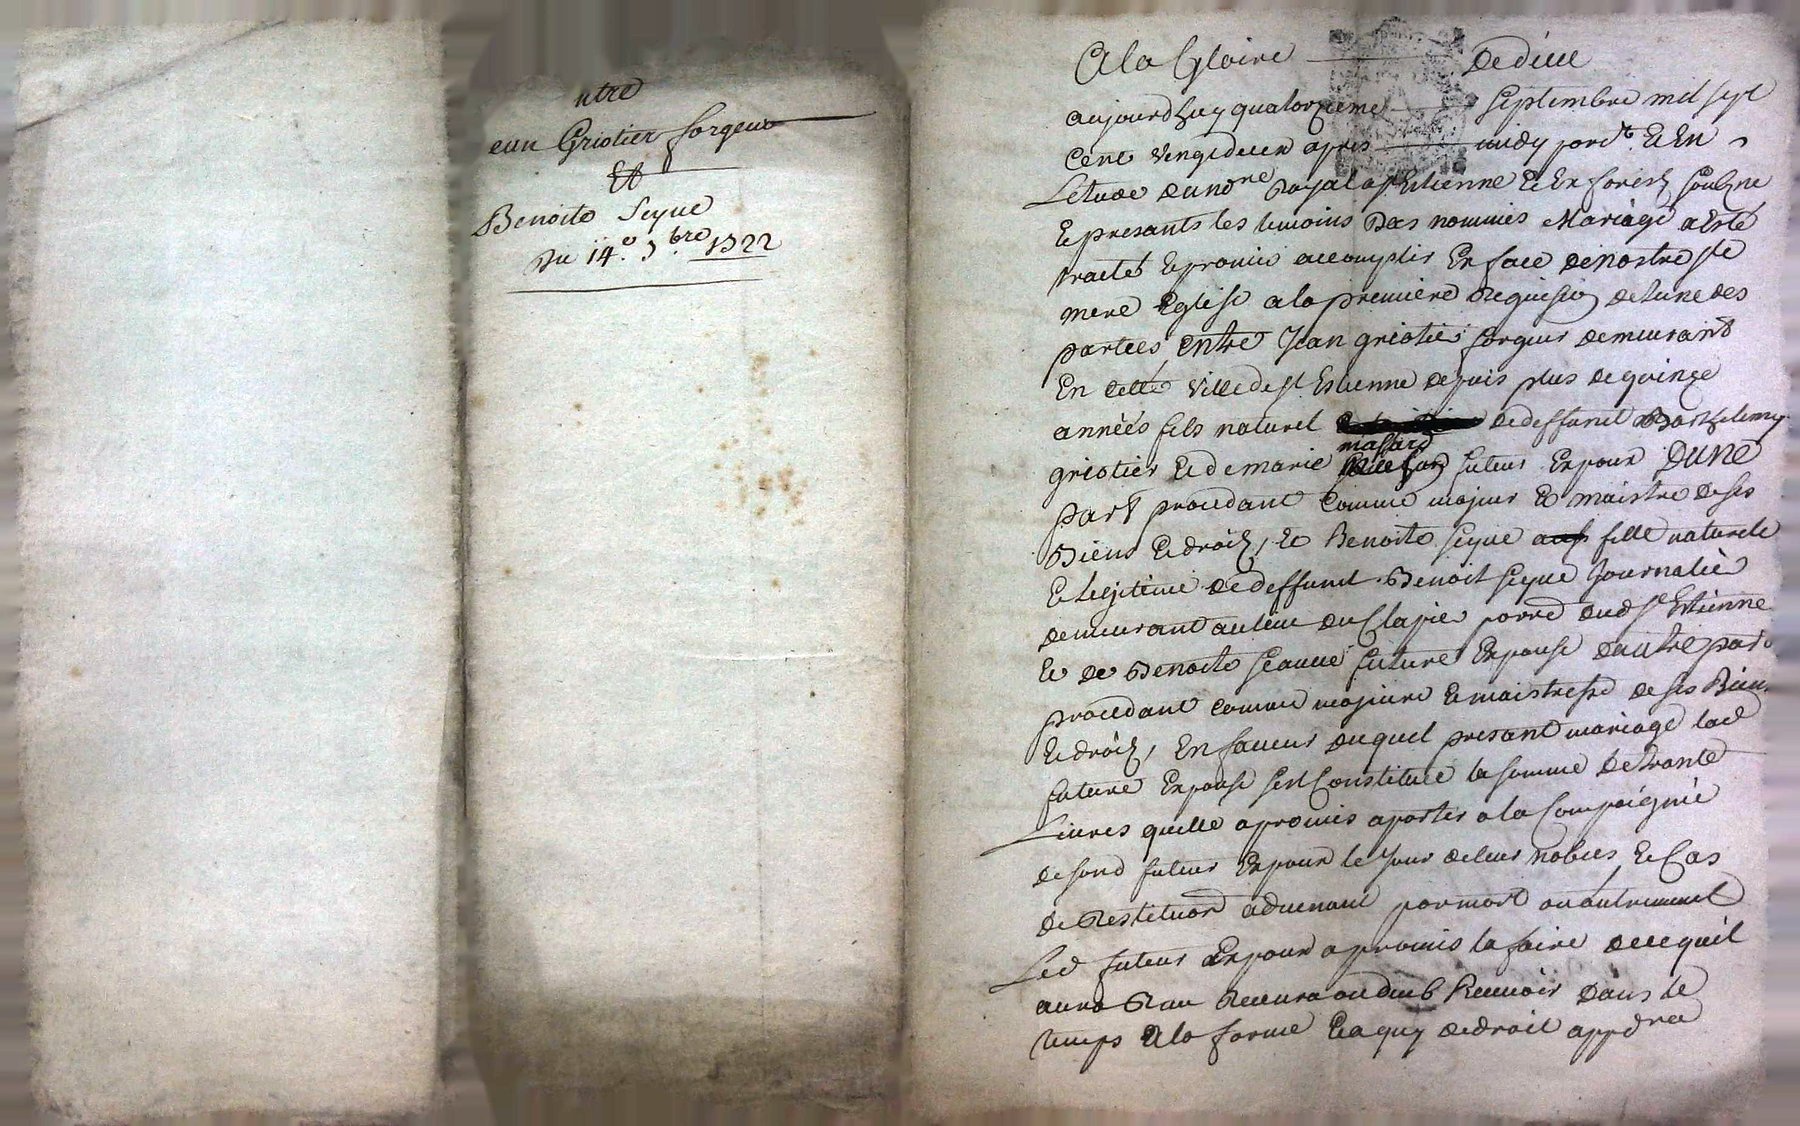 ntre
ean Griotier forgeur
Et
Benoite Seyue
Du 14.e 7.bre 1722
A la Gloire de dieu
aujourdhuy quatorzieme septembre mil sept
cent vingt deux apres midy pard.t & En
Letude du no.re Royal a St Etienne & En forest soubz.ne
& presants les temoins Bas nommés Mariage a Esté
traité & promis accomplir En face de nostre Ste
mere Eglise a la premiere Requision de lune des
parties, Entre Jean griotier forgeur demeurant
En cette Ville de St Estienne depuis plus de quinze
années fils naturel de deffunct Barthelemy
griotier & de marie massard futeur Expoux Dune
part procedant comme majeur & maistre de ses
Biens & droits, & Benoite seyue fille naturele
& legitime de deffunct Benoit seyue Journalie
demeurant au lieu du Clapier parre dud St Estienne
& de Benoite seauue future Expouse dautre part
procedant comme majeure & maistresse de ses Biens
& droits, En faueur duquel presant mariage lad
future Expouse sest Constituée la somme de trante
Liures quelle a promis aporter a la Compaignie
de sond futeur Expoux le Jour de leur nobces, & Cas
de Restituon aduenant par mort ou autrement
Led futeur Expoux a promis la faire de ce quil
aura Reçeu Receura ou deub Receuoir dans le
temps & la forme & a quy de droit appdra